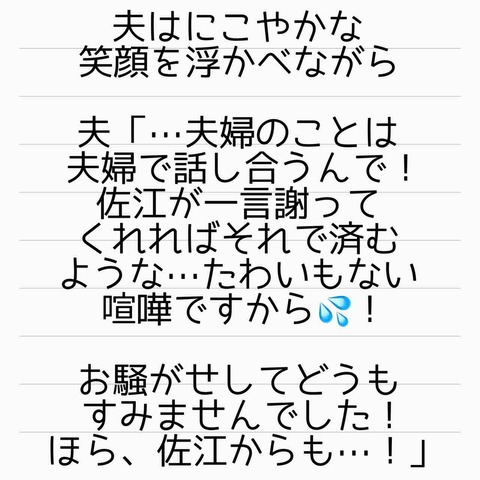 夫はにこやかな
笑顔を浮かべながら
夫「…夫婦のことは
夫婦で話し合うんで！
佐江が一言謝って
くれればそれで済む
ような…たわいもない
喧嘩ですから💦！
お騒がせしてどうも
すみませんでした！
ほら、佐江からも…！」